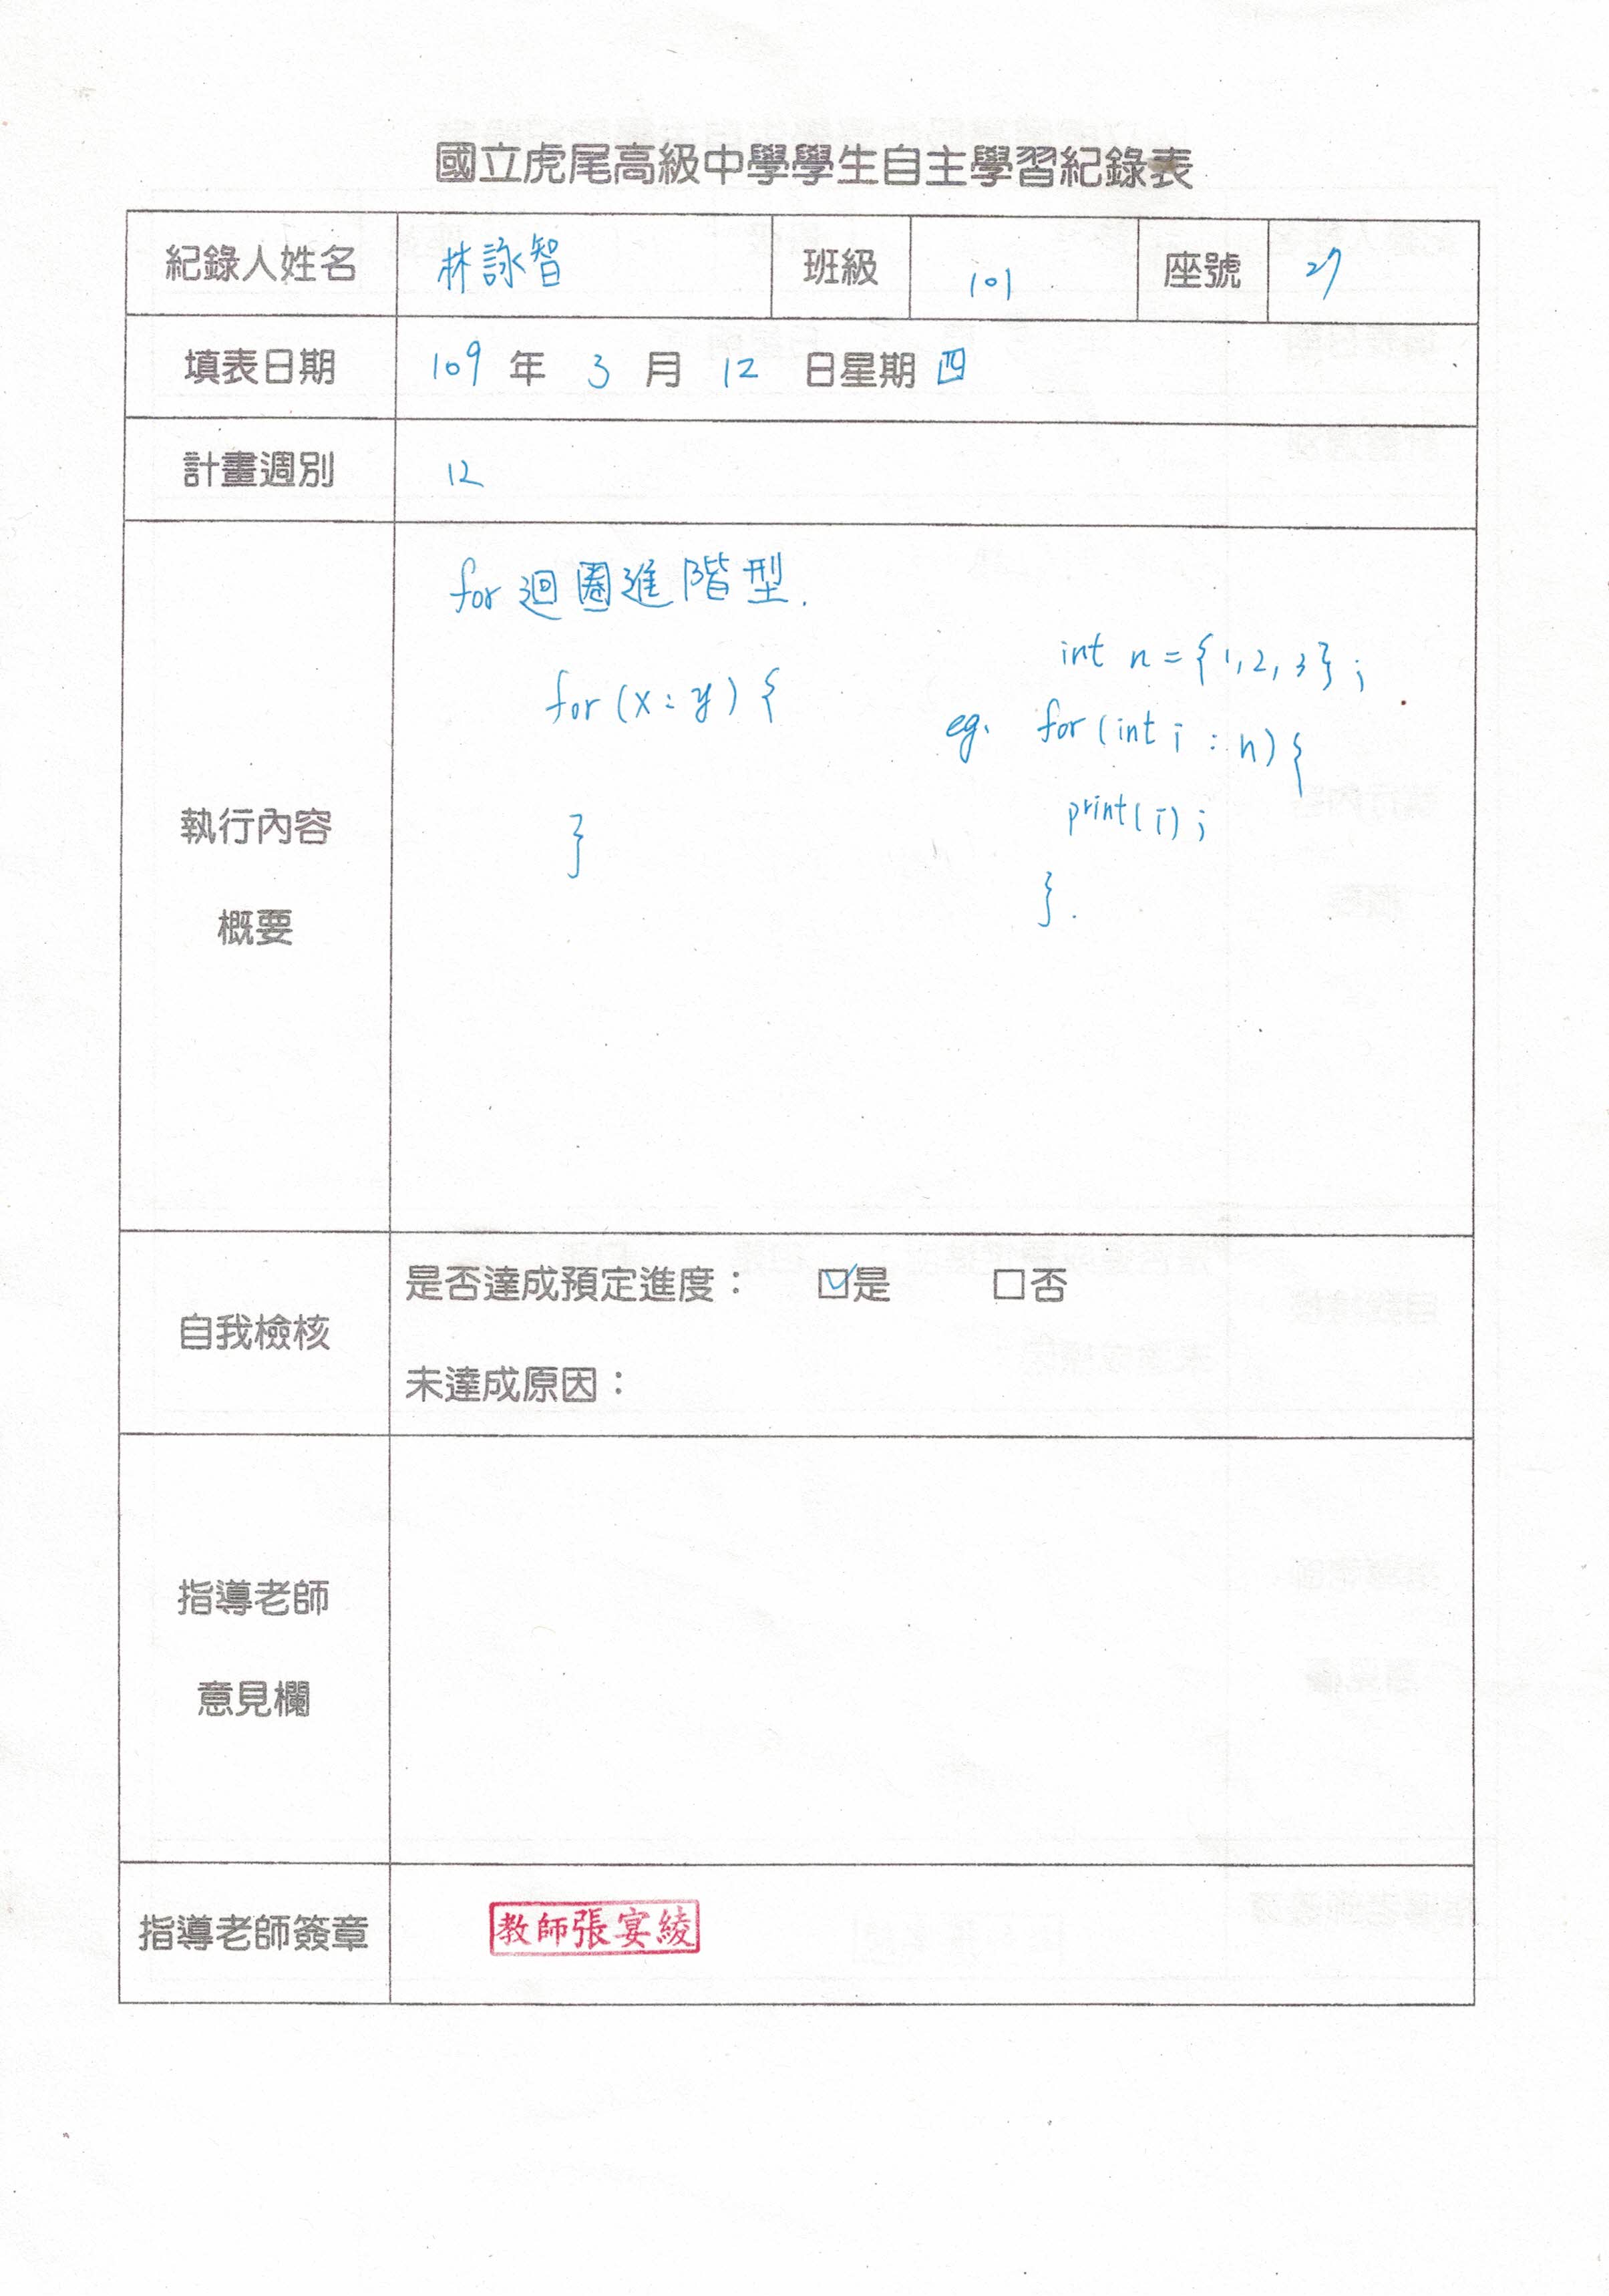 國立虎尾高級中學學生自主學習紀錄表
紀錄人姓名 林詠智 班級 101 座號 27
填表日期 109 年 3 月 12 日星期 四
計畫週別 12
執行內容
概要
for 迴圈進階型.
for (x : y) {
}
int n = {1, 2, 3} ;
eg. for (int i : n) {
print(i) ;
}.
自我檢核
是否達成預定進度： ☑是 □否
未達成原因：
指導老師
意見欄
指導老師簽章 教師張宴綾